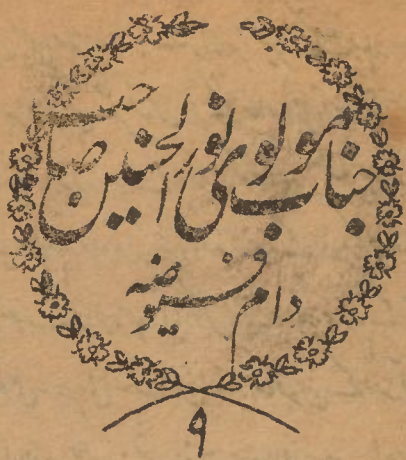 جناب مولوی نور الحنین صاحب
دام فیوضہ
۹